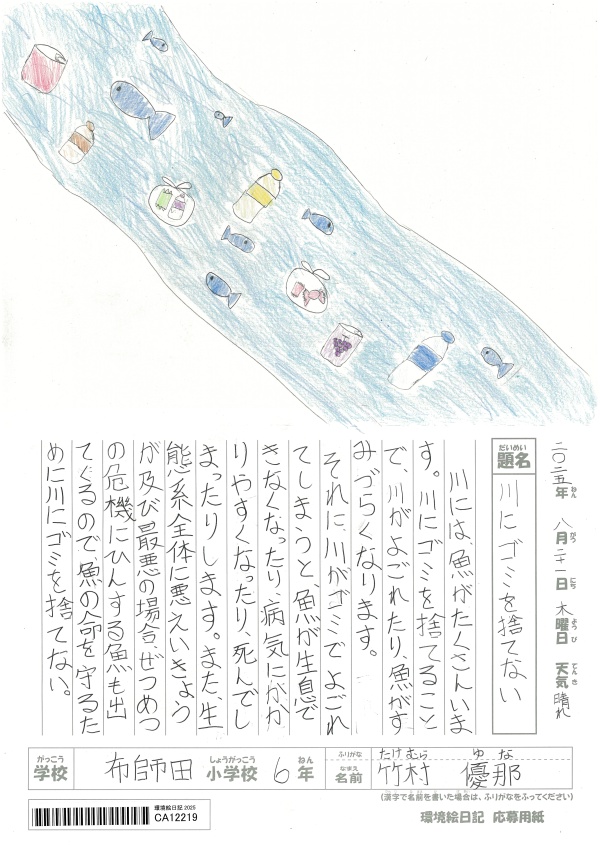 二〇二五年 八月二十一日 木曜日 天気 晴れ
ねん がつ にち ようび てんき
だいめい
題名
川にゴミを捨てない
川には、魚がたくさんいま
す。川にゴミを捨てること
で、川がよごれたり、魚がす
みづらくなります。
それに、川がゴミでよごれ
てしまうと、魚が生息で
きなくなったり、病気にかか
りやすくなったり、死んでし
まったりします。また、生
態系全体に悪えいきょう
が及び最悪の場合、ぜつめつ
の危機にひんする魚も出
てくるので、魚の命を守るた
めに川にゴミを捨てない。
がっこう しょうがっこう ねん ふりがな たけむら ゆな
学校 布師田 小学校 6年 なまえ 名前 竹村 優那
(漢字で名前を書いた場合は、ふりがなをふってください)
環境絵日記 2025
CA12219
環境絵日記 応募用紙